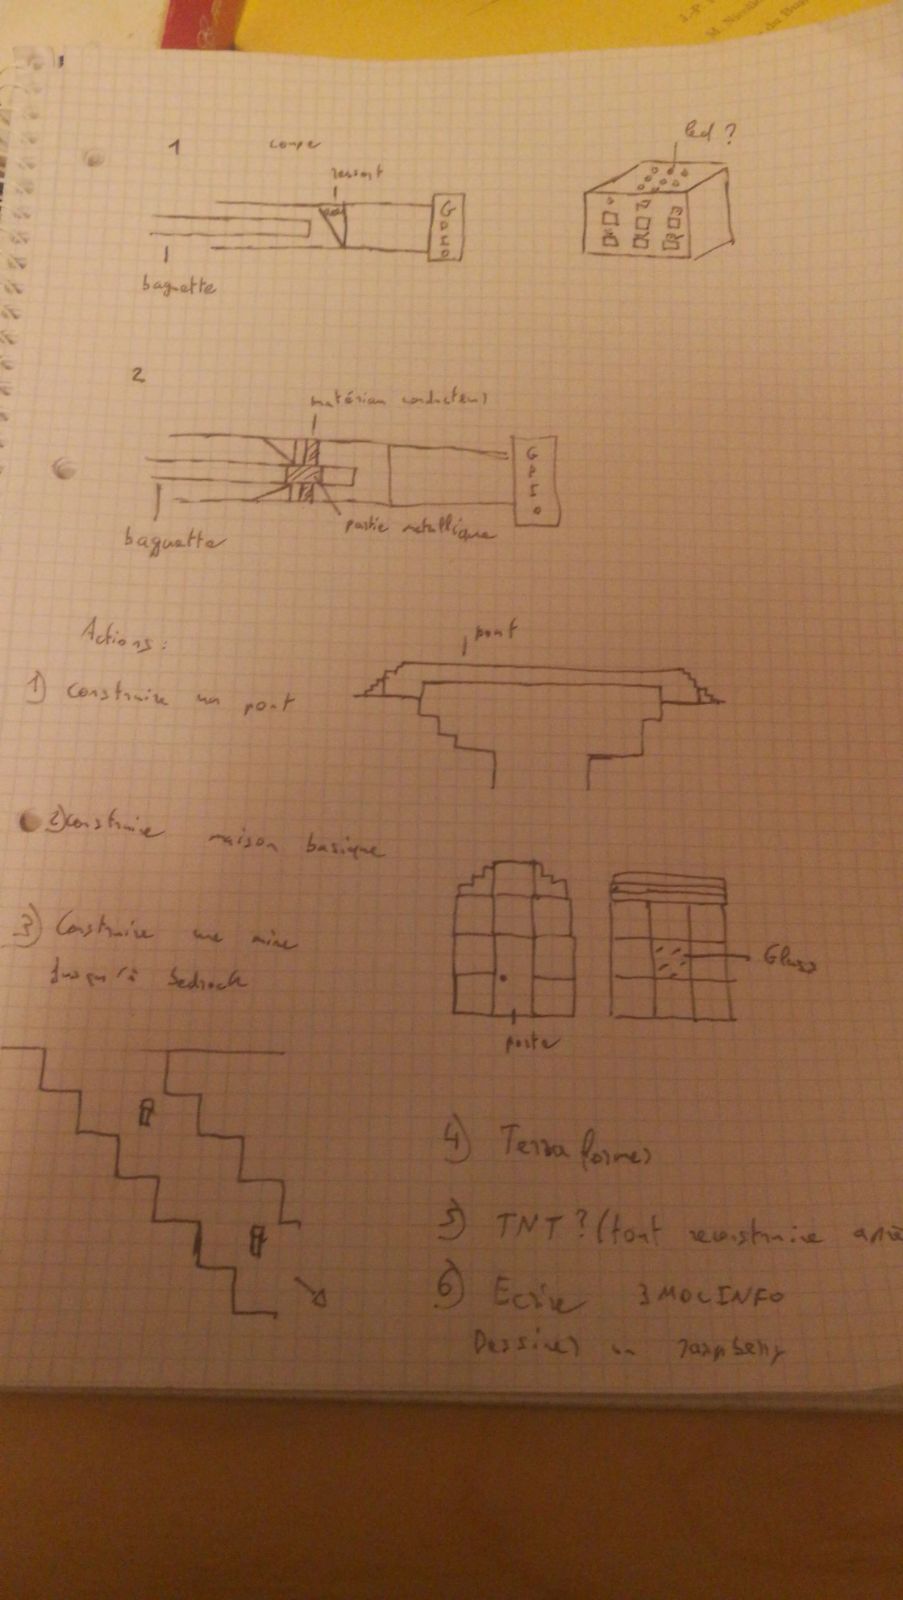 1
coupe
ressort
led ?
baguette
2
matériau conducteur
baguette
partie metallique
Actions :
pont
1) construire un pont
2) construire maison basique
3) Construire une mine
jusqu'à bedrock
Glass
porte
4) Terraformer
5) TNT ? (tout reconstruire
6) Ecrire 3MOCINFO
Dessiner un raspberry